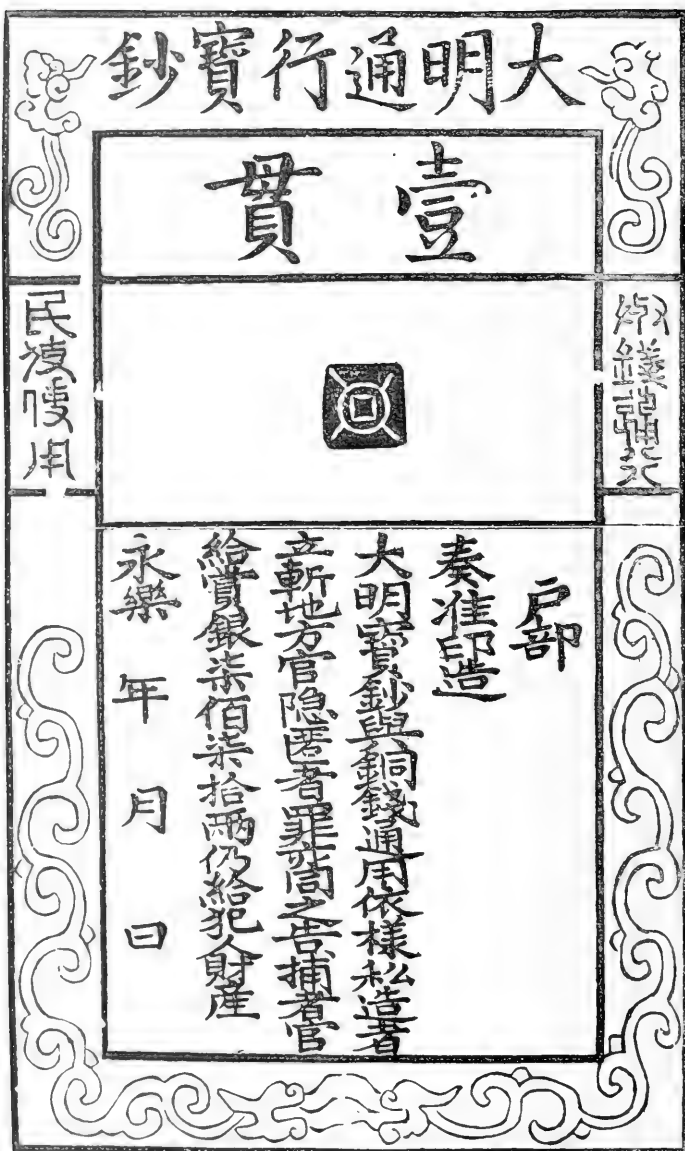 大明通行寶鈔
壹貫
錢
民便用
户部
奏准印造
大明寶鈔與銅錢通用依様私造者
立斬地方官隐匿者罪亦同之告捕者官
給賞銀柒佰柒拾兩仍給犯人財產
永樂 年 月 日